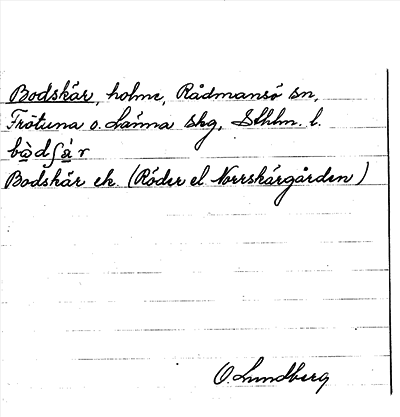 Bodskär, holme, Rådmansö sn,
Frötuna o. Länna skg, Sthlm. l.
bòdʃä̀r
Bodskär ek. (Röder el Norrskärgården)
O. Lundberg